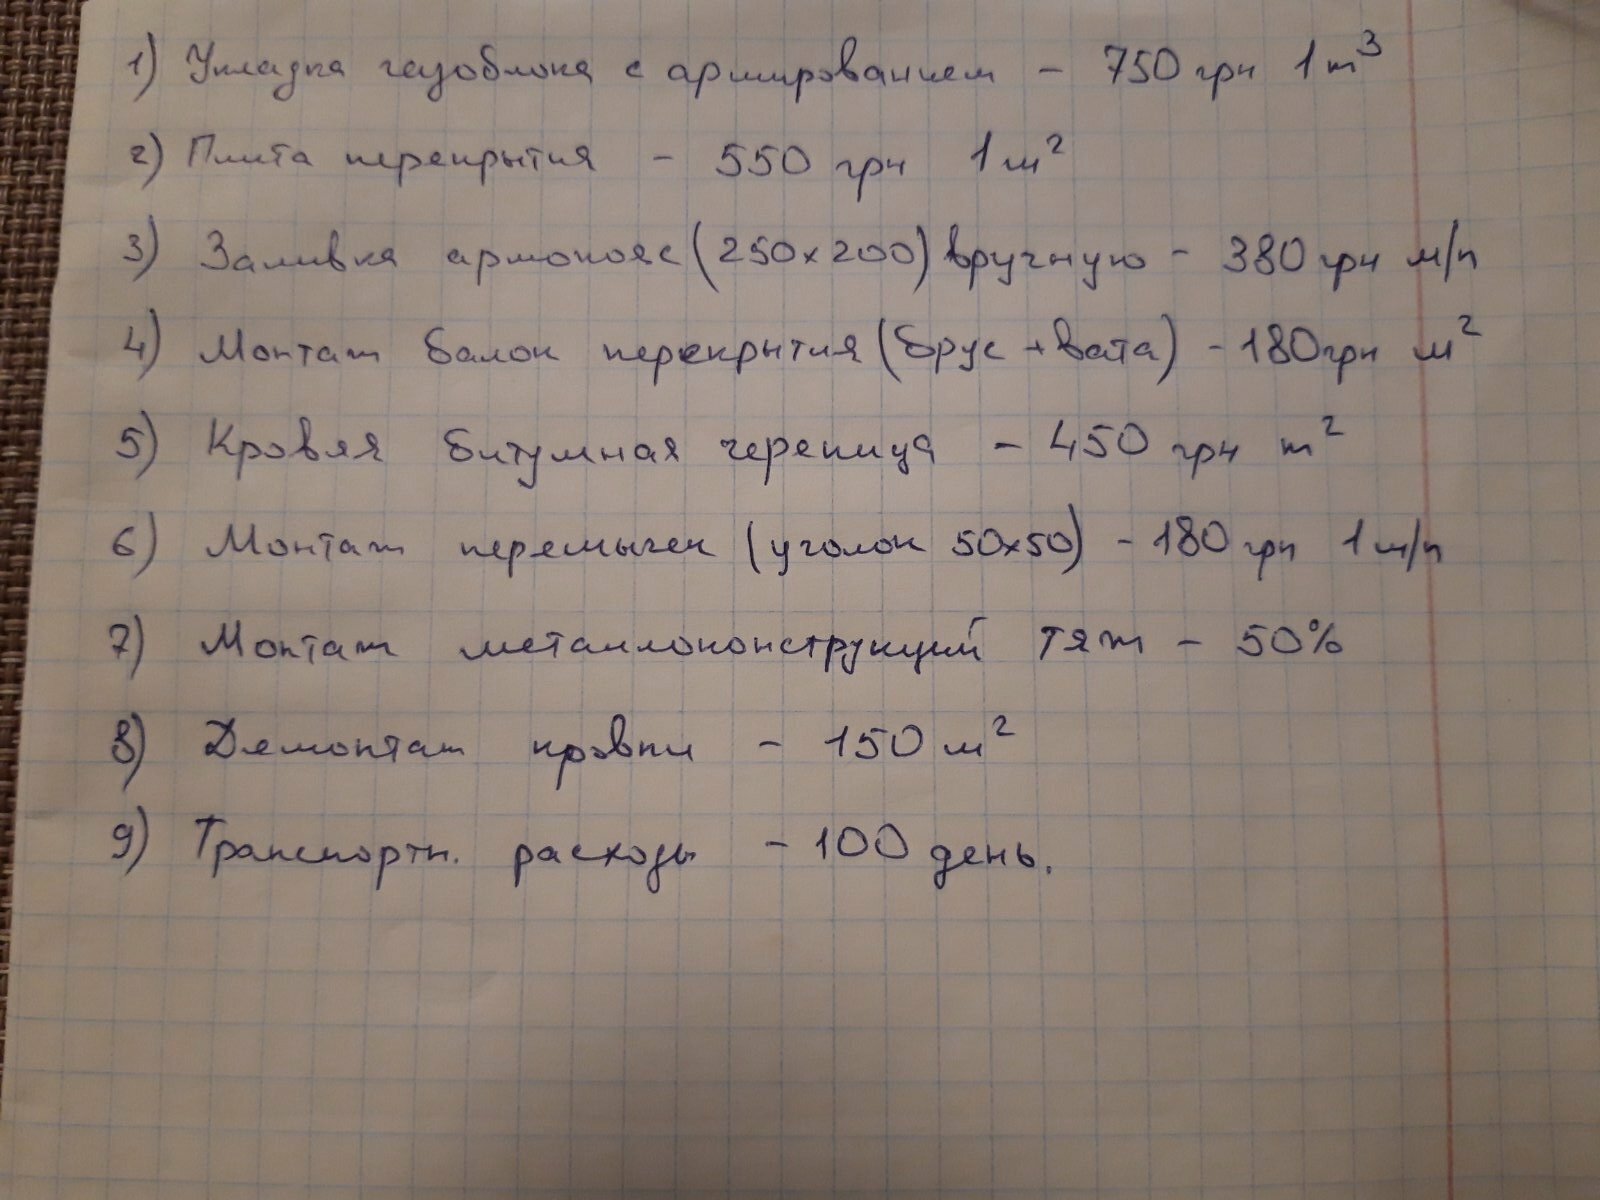 1) Укладка газоблока с армированием - 750 грн 1 m³
2) Плита перекрытия - 550 грн 1 м²
3) Заливка армопояс (250х200) вручную - 380 грн м/п
4) Монтаж балок перекрытия (брус + вата) - 180 грн м²
5) Кровля битумная черепица - 450 грн m²
6) Монтаж перемычек (уголок 50х50) - 180 грн 1 м/п
7) Монтаж металлоконструкций тяж - 50%
8) Демонтаж кровли - 150 м²
9) Транспортн. расходы - 100 день.